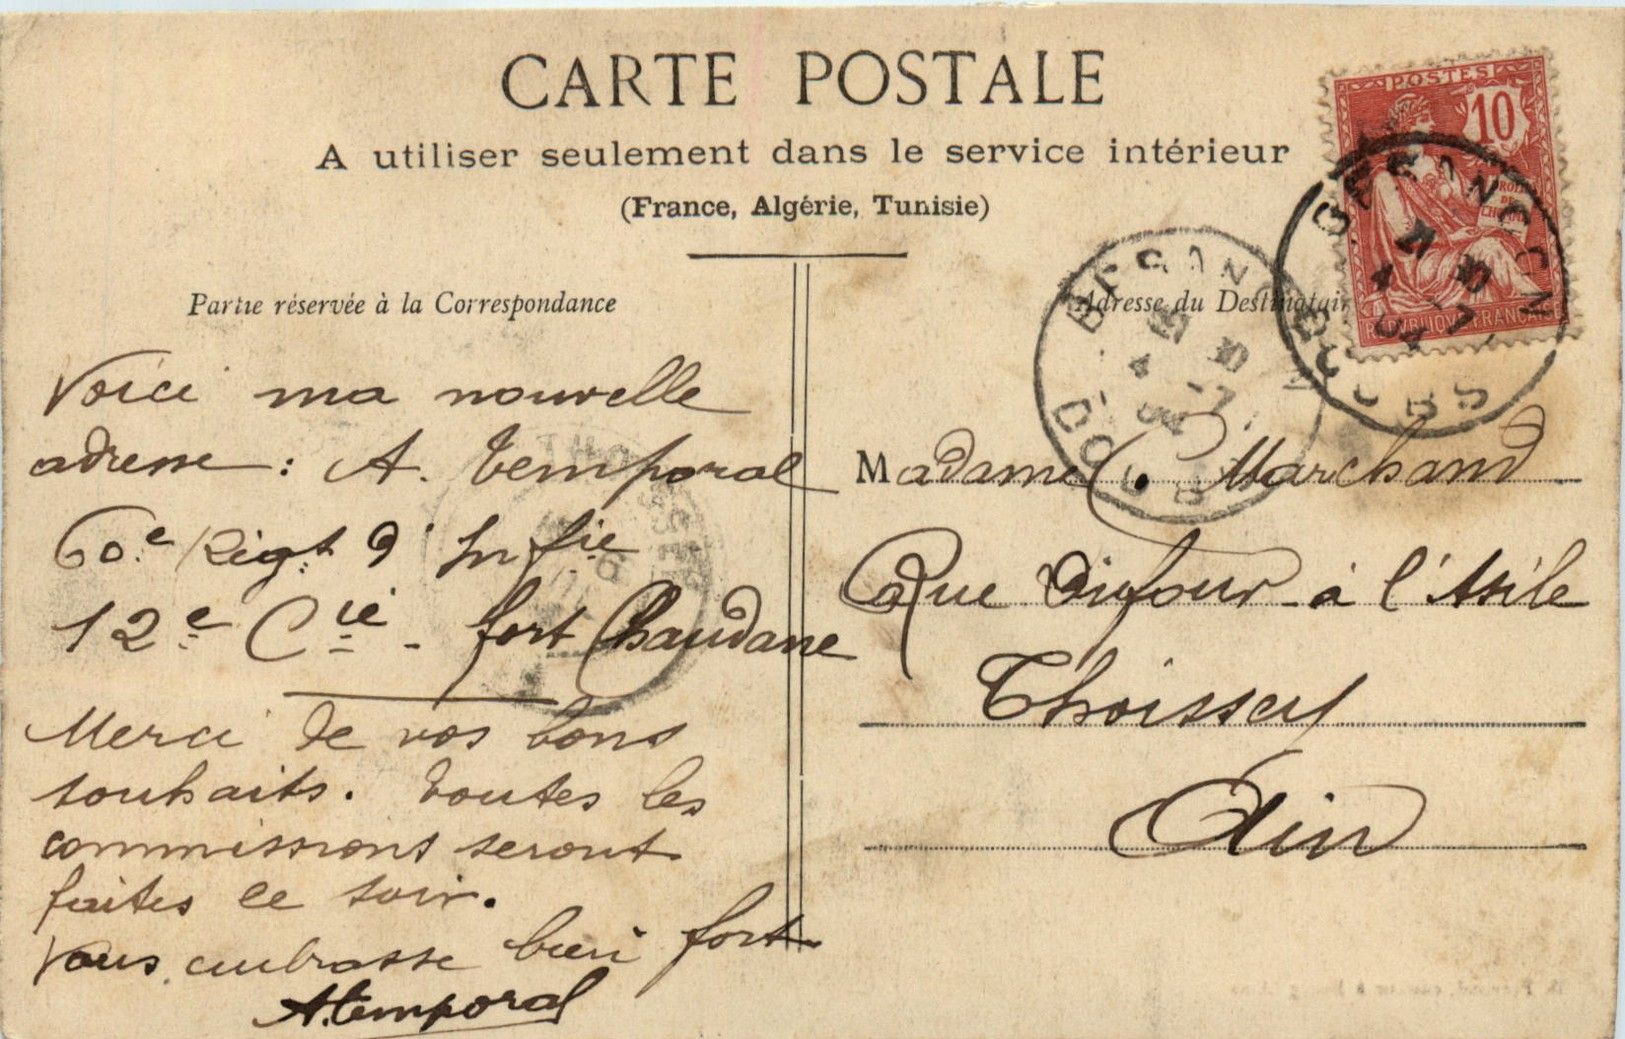 CARTE POSTALE
A utiliser seulement dans le service intérieur
(France, Algérie, Tunisie)
Partie réservée à la Correspondance
Voici ma nouvelle
adresse : A. Temporal
60e Régt d' Infie
12e Cie - fort Chaudane
Merci de vos bons
souhaits. Toutes les
commissions seront
faites ce soir.
Vous embrasse bien fort
A. Temporal
Adresse du Destinatair
POSTES
10
RÉPUBLIQUE FRANÇAI
BESANCON
4 -7
04
DOUBS
BESANCON
4 -7
04
DOUBS
Madame Marchand
Rue Dufour à l'Asile
Thoissey
Ain